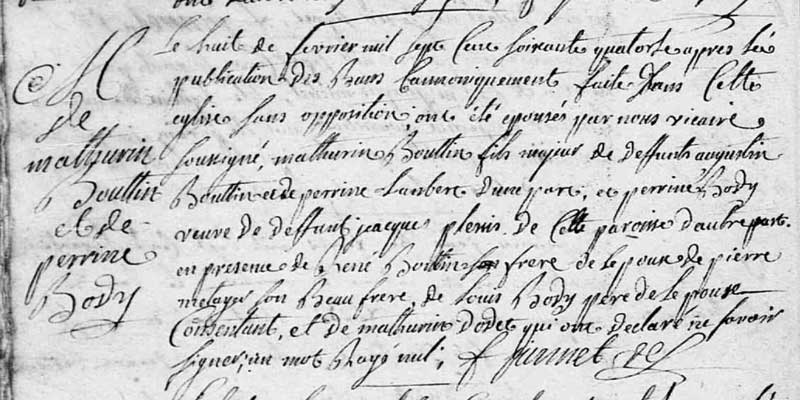 M
de
mathurin
Bouttin
et de
perrine
Body
Le huit de fevrier mil sept cent soixante quatorse apres les
publication des Bans Cannoniquement faite dans Cette
eglise sans opposition, ont été epousés par nous vicaire
soussigné, mathurin Bouttin fils majeur de deffunts augustin
Bouttin et de perrine Lanbert d'une part, et perrine Body
veuve de deffunt jacques plenis de Cette paroise d'autre part.
en presence de René Bouttin son frere de lepoux de pierre
metayer son Beau frere, de Louis Body pere de lepouse
Consentant, et de mathurin dodet qui ont declaré ne savoir
signer; un mot Rayé nul;